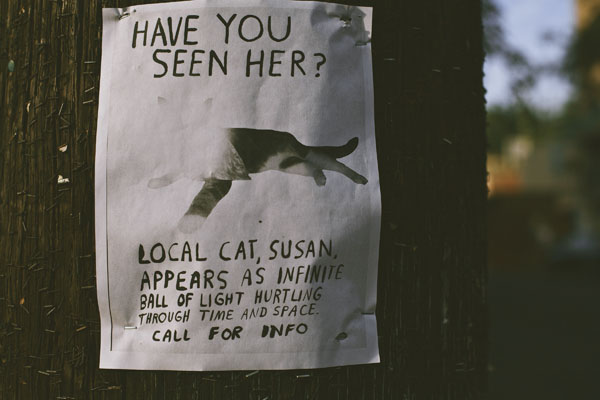 HAVE YOU
SEEN HER?
LOCAL CAT, SUSAN,
APPEARS AS INFINITE
BALL OF LIGHT HURTLING
THROUGH TIME AND SPACE.
CALL FOR INFO